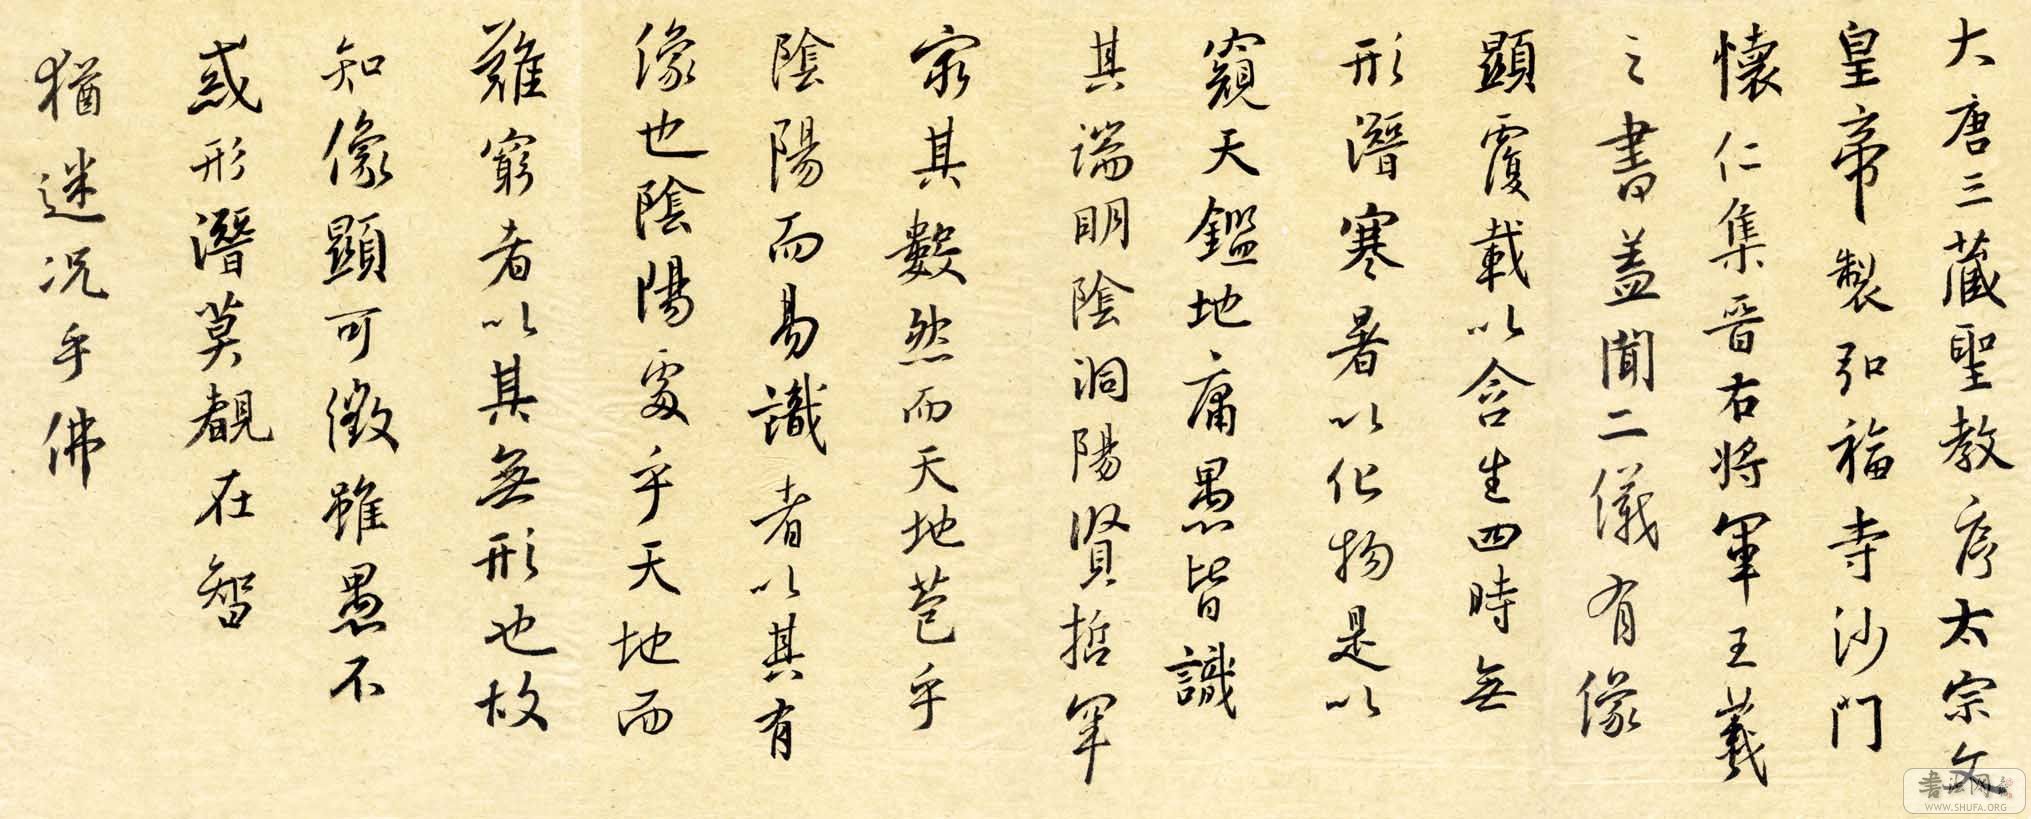 大唐三藏聖教序太宗文
皇帝製弘福寺沙門
懷仁集晉右將軍王羲
之書蓋聞二儀有像
顯覆載以含生四時無
形潛寒暑以化物是以
窺天鑑地庸愚皆識
其端明陰洞陽賢哲罕
窮其數然而天地苞乎
陰陽而易識者以其有
像也陰陽處乎天地而
難窮者以其無形也故
知像顯可徵雖愚不
惑形潛莫覩在智
猶迷況乎佛
书法网
WWW.SHUFA.ORG